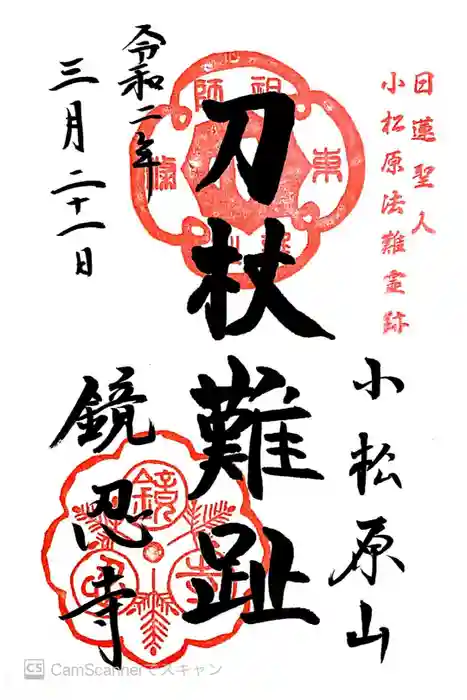 日蓮聖人
小松原法難霊跡
小松原山
刀杖難趾
令和二年
三月二十一日
鏡忍寺
祖師
東
鏡
寺
CS CamScannerでスキャン